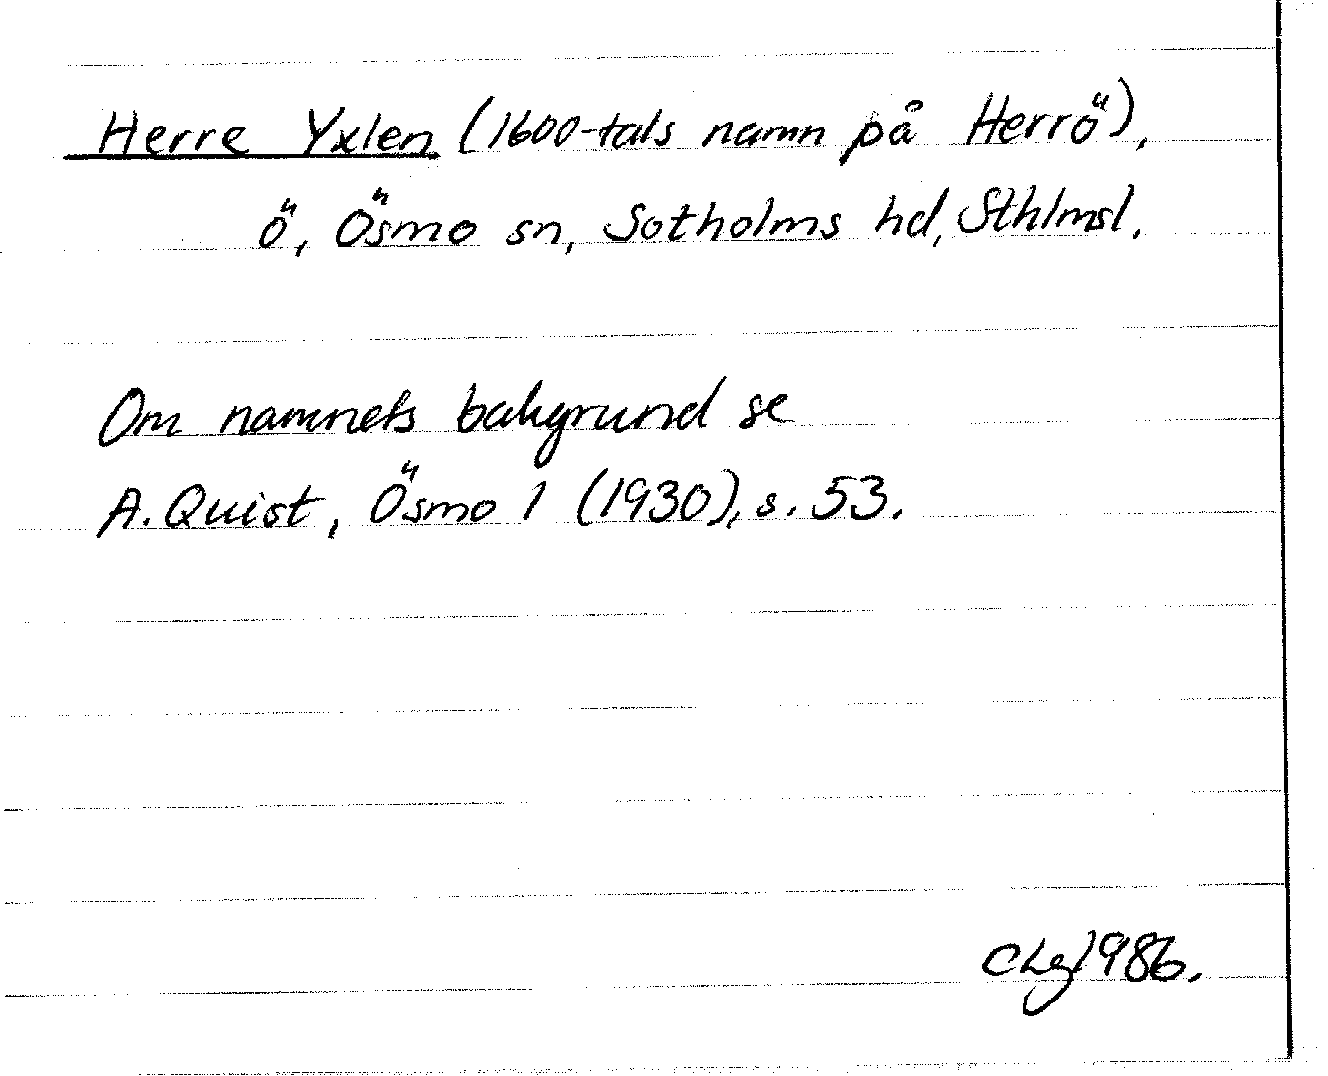 Herre Yxlen (1600-tals namn på Herrö),
ö, Ösmo sn, Sotholms hd, Sthlmsl.
Om namnets bakgrund se
A. Quist, Ösmo 1 (1930), s. 53.
CLg 1986.